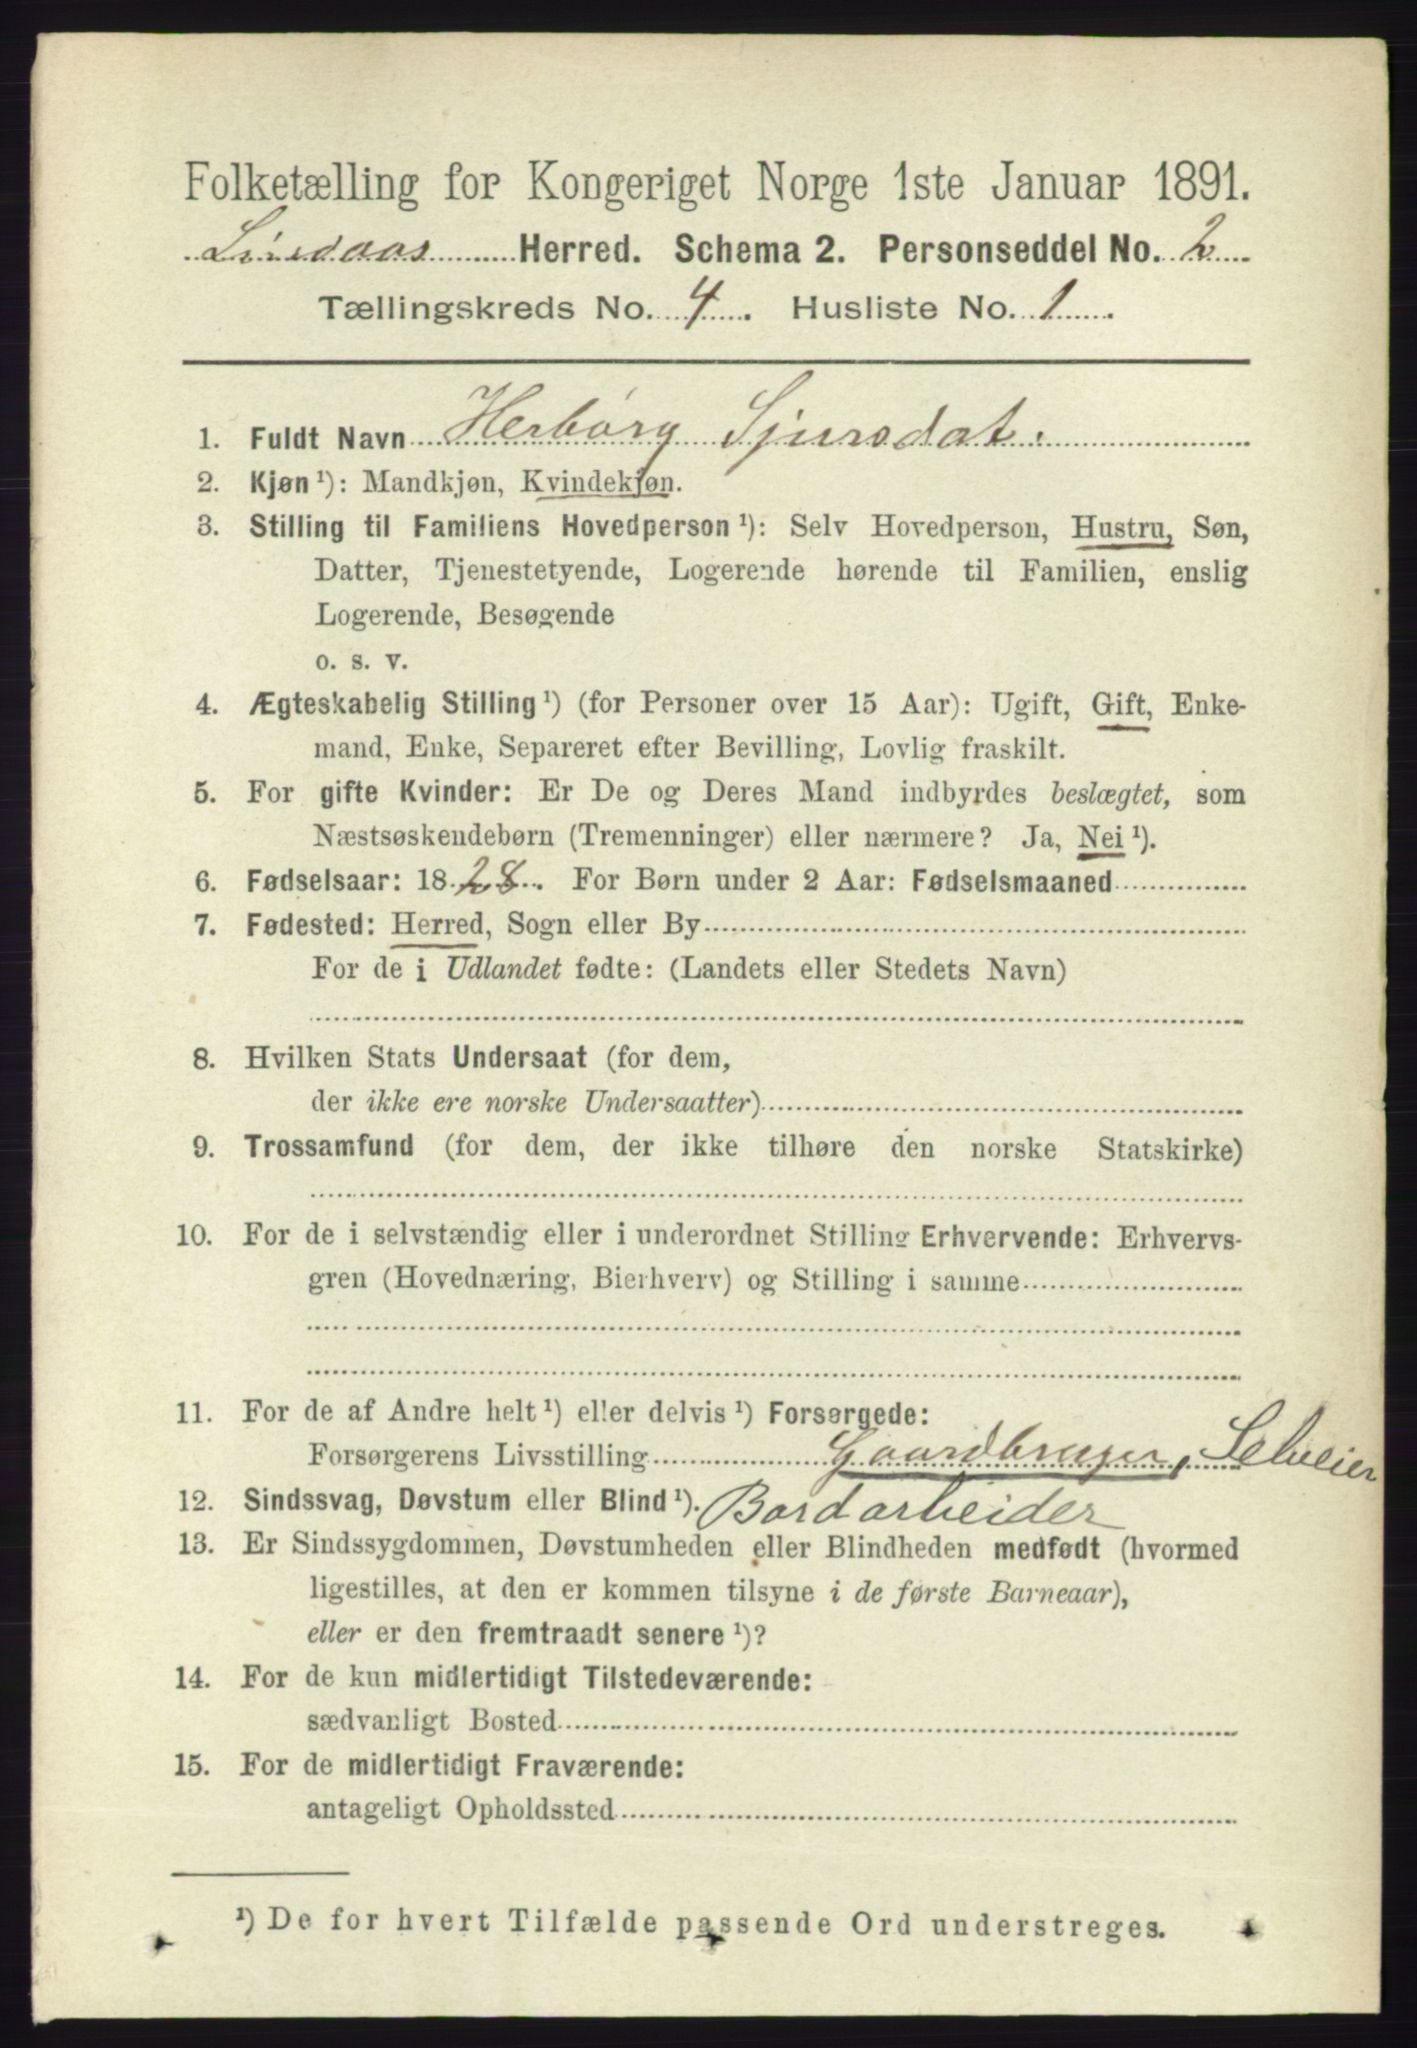 Folketælling for Kongeriget Norge 1ste Januar 1891.
Lindaas Herred. Schema 2. Personseddel No. 2
Tællingskreds No. 4. Husliste No. 1.
1. Fuldt Navn Herbørg Sjursdat.
2. Kjøn¹): Mandkjøn, Kvindekjøn.
3. Stilling til Familiens Hovedperson¹): Selv Hovedperson, Hustru, Søn,
Datter, Tjenestetyende, Logerende hørende til Familien, enslig
Logerende, Besøgende
o. s. v.
4. Ægteskabelig Stilling¹) (for Personer over 15 Aar): Ugift, Gift, Enke-
mand, Enke, Separeret efter Bevilling, Lovlig fraskilt.
5. For gifte Kvinder: Er De og Deres Mand indbyrdes beslægtet, som
Næstsøskendebørn (Tremenninger) eller nærmere? Ja, Nei¹).
6. Fødselsaar: 1828. For Børn under 2 Aar: Fødselsmaaned
7. Fødested: Herred, Sogn eller By
For de i Udlandet fødte: (Landets eller Stedets Navn)
8. Hvilken Stats Undersaat (for dem,
der ikke ere norske Undersaatter)
9. Trossamfund (for dem, der ikke tilhøre den norske Statskirke)
10. For de i selvstændig eller i underordnet Stilling Erhvervende: Erhvervs-
gren (Hovednæring, Bierhverv) og Stilling i samme
11. For de af Andre helt¹) eller delvis¹) Forsørgede:
Forsørgerens Livsstilling Gaardbruger, Selveier
12. Sindssvag, Døvstum eller Blind¹). Bordarbeider
13. Er Sindssygdommen, Døvstumheden eller Blindheden medfødt (hvormed
ligestilles, at den er kommen tilsyne i de første Barneaar),
eller er den fremtraadt senere¹)?
14. For de kun midlertidigt Tilstedeværende:
sædvanligt Bosted
15. For de midlertidigt Fraværende:
antageligt Opholdssted
¹) De for hvert Tilfælde passende Ord understreges.